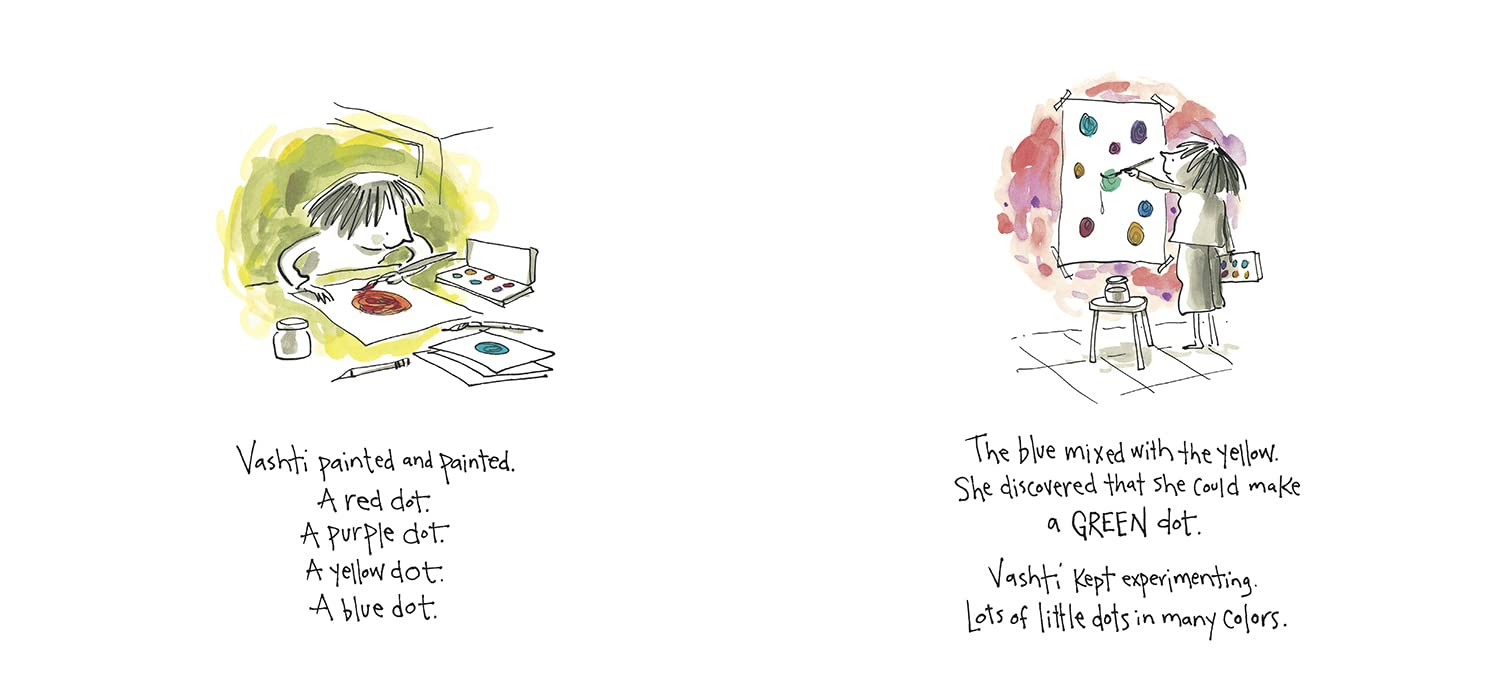 Vashti painted and painted.
A red dot.
A purple dot.
A yellow dot.
A blue dot.
The blue mixed with the yellow.
She discovered that she could make
a GREEN dot.
Vashti kept experimenting.
Lots of little dots in many colors.